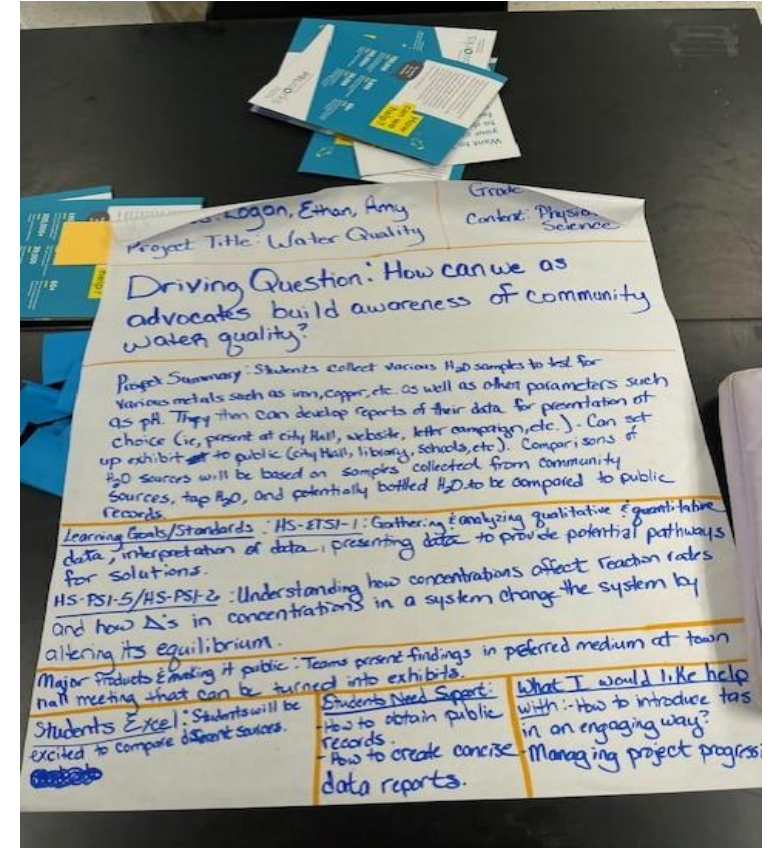 How
can we
help?
Want to
Logan, Ethan, Amy
Grade
Project Title: Water Quality
Content: Physical
Science
Driving Question: How can we as
advocates build awareness of community
water quality?
Project Summary: Students collect various H2O samples to test for
various metals such as iron, copper, etc. as well as other parameters such
as pH. They then can develop reports of their data for presentation of
choice (ie, present at city Hall, website, letter campaign, etc.). Can set
up exhibit to public (city Hall, library, schools, etc). Comparisons of
H2O sources will be based on samples collected from community
sources, tap H2O, and potentially bottled H2O to be compared to public
records.
Learning Goals/Standards: HS-ETS1-1: Gathering & analyzing qualitative & quantitative
data, interpretation of data, presenting data to provide potential pathways
for solutions.
HS-PS1-5/HS-PS1-6: Understanding how concentrations affect reaction rates
and how Δ's in concentrations in a system change the system by
altering its equilibrium.
Major Products & making it public: Teams present findings in preferred medium at town
hall meeting that can be turned into exhibits.
Students Excel: Students will be
excited to compare different sources.
Students Need Support:
-How to obtain public
records.
-How to create concise
data reports.
What I would like help
with:-How to introduce tas
in an engaging way?
-Managing project progressi